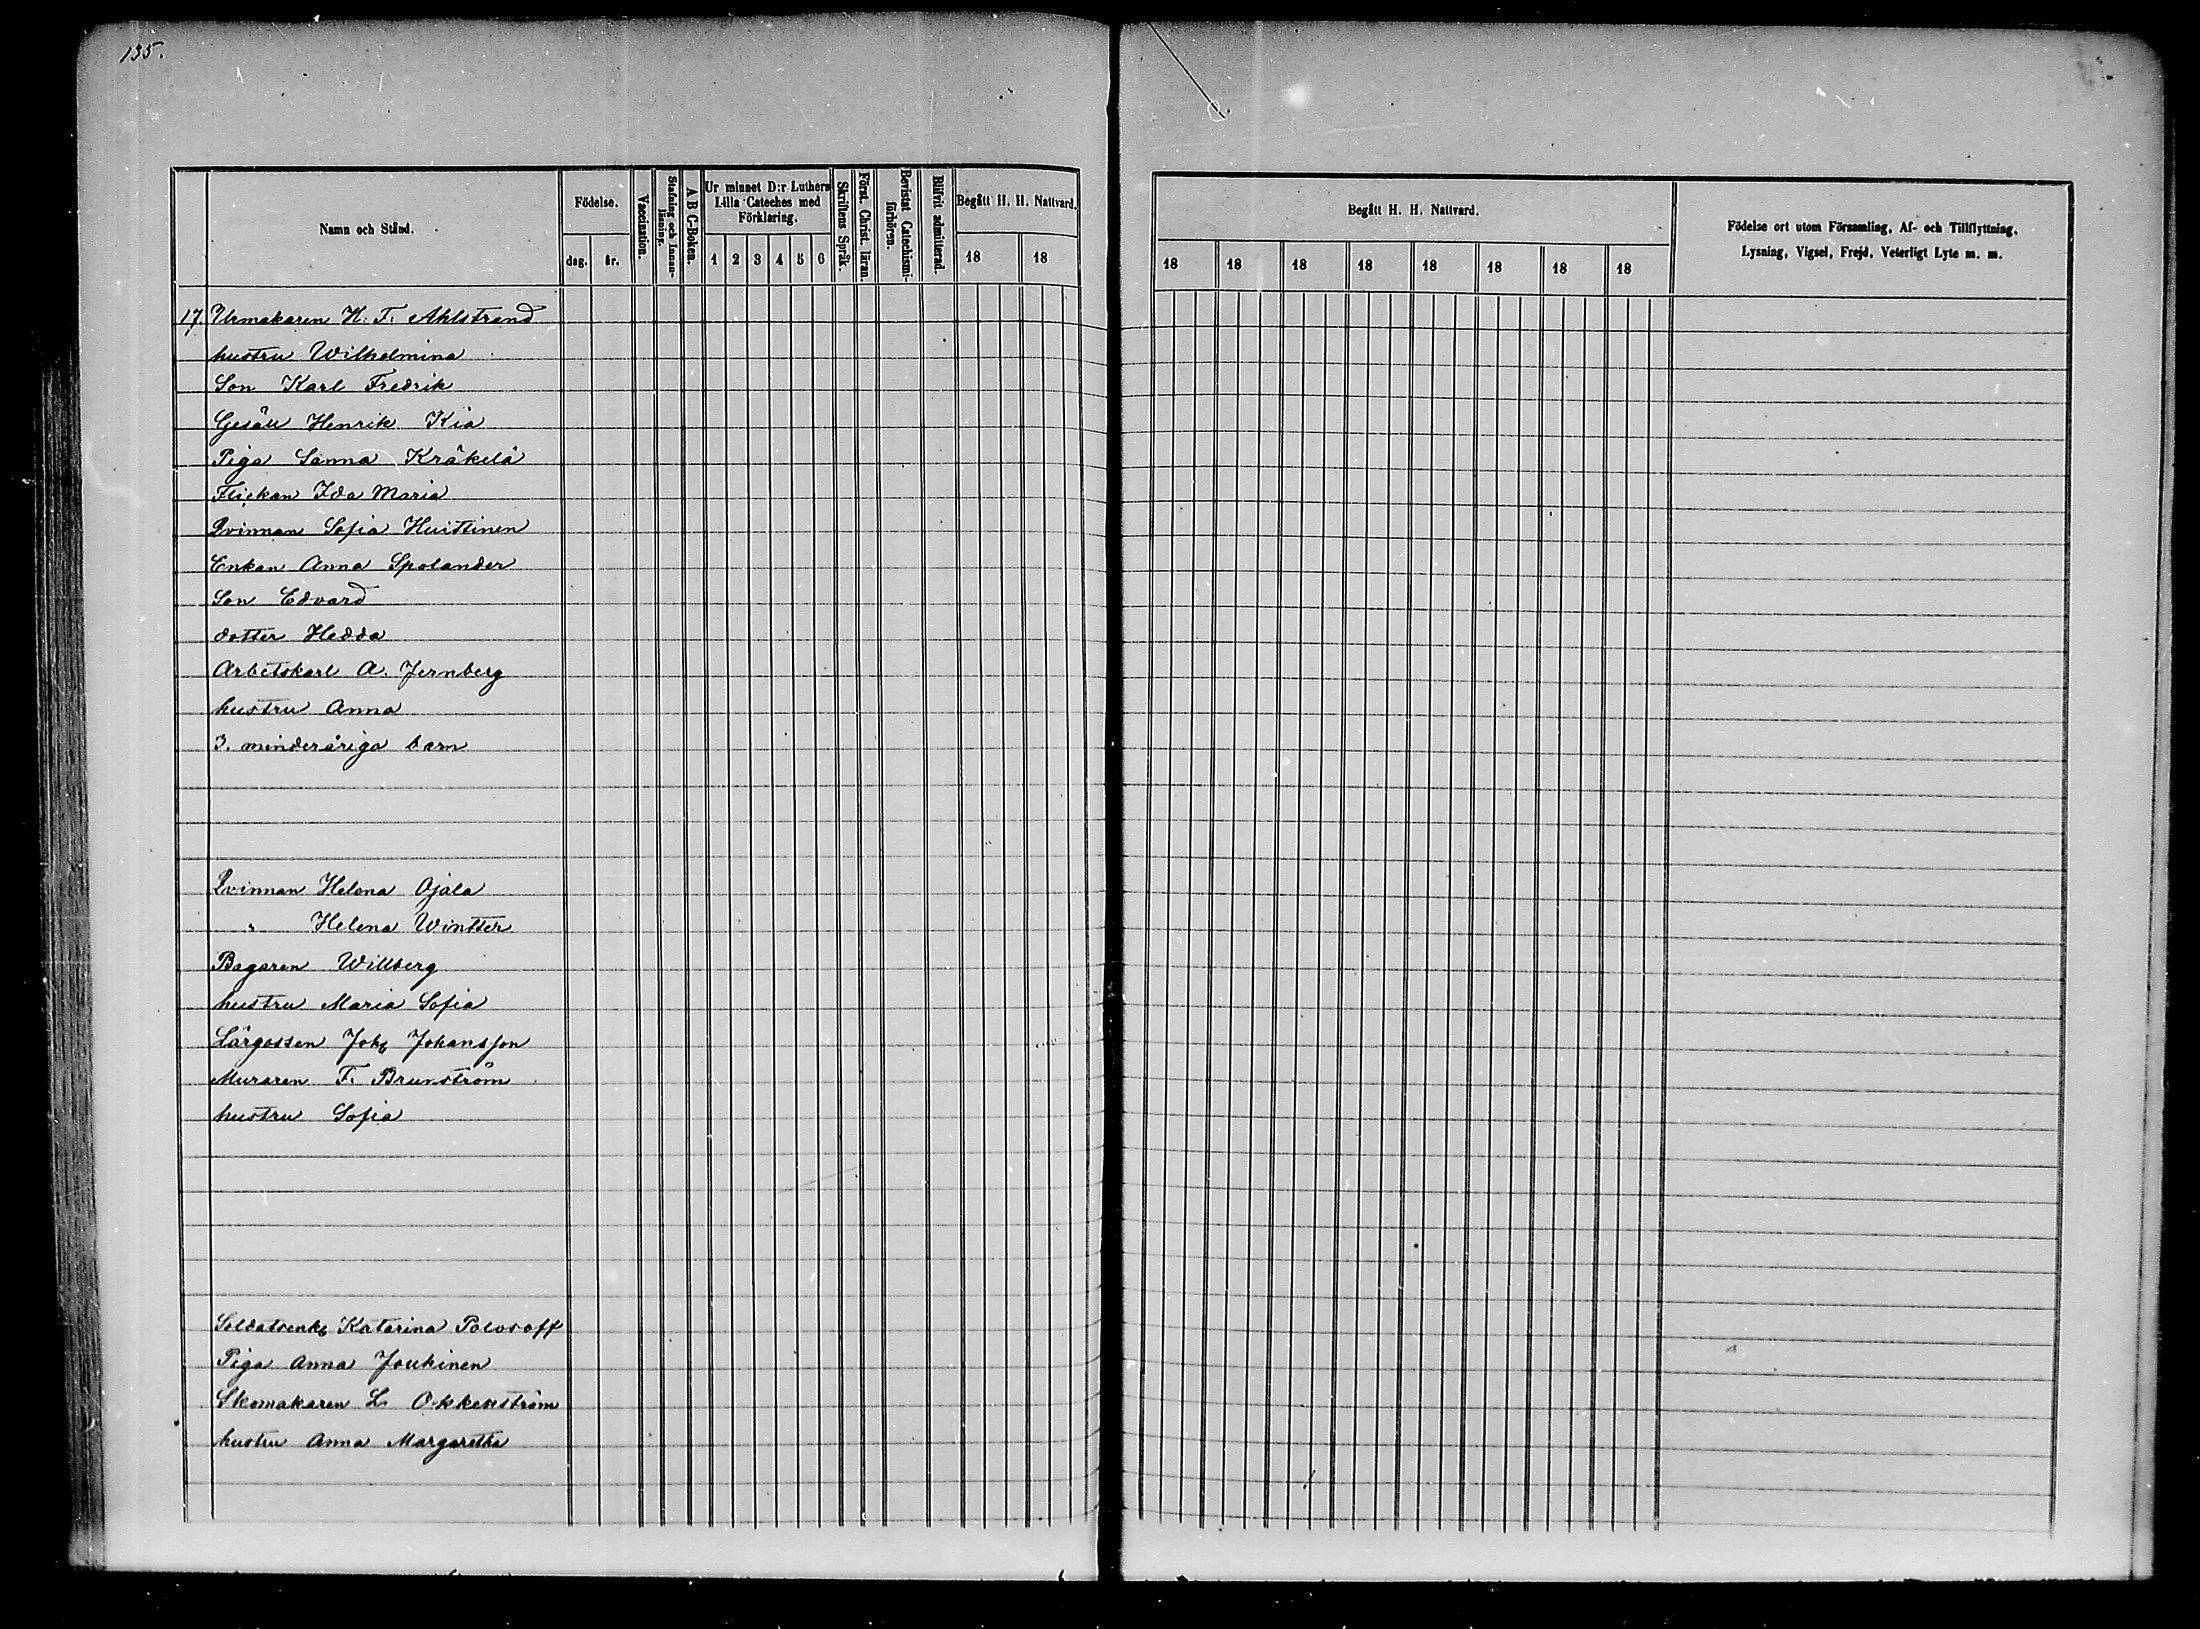 135.
Namn och Stånd.
Födelse.
dag. år.
Vaccination.
Stafning och Innan-
läsning.
A B C-Boken.
Ur minnet D:r Luthers
Lilla Cateches med
Förklaring.
1 2 3 4 5 6
Skriftens Språk.
Först. Christ. läran.
Bevistat Catechismi-
förhören.
Blifvit admitterad.
Begått H. H. Nattvard.
18 18
Begått H. H. Nattvard.
18 18 18 18 18 18 18 18
Födelse ort utom Församling, Af- och Tillflyttning,
Lysning, Vigsel, Frejd, Veterligt Lyte m. m.
17. Urmakaren K. F. Ahlstrand
hustru Wilhelmina
Son Karl Fredrik
Gesäll Henrik Kiä
Piga Sanna Kräkilä
Flickan Ida Maria
Qvinnan Sofia Huittinen
Enkan Anna Spolander
Son Edvard
dotter Hedda
Arbetskarl A. Jernberg
hustru Anna
3. minderåriga barn
Qvinnan Helena Ojala
" Helena Wintter
Bagaren Willberg
hustru Maria Sofia
Lärgossen Joh Johansson
Muraren F. Brunström
hustru Sofia
Soldatenk Katarina
Piga Anna Jouhinen
Skomakaren L. Okkenström
hustru Anna Margaretha